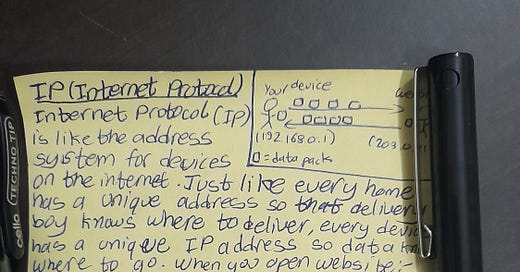 IP (Internet Protocol)
Internet Protocol (IP)
is like the address
system for devices
on the internet. Just like every home
has a unique address so that delivery
boy knows where to deliver, every device
has a unique IP address so data
where to go. When you open website:-
Your device
(192.168.0.1)
(203.0.
= data pack
cello TECHNOTIP